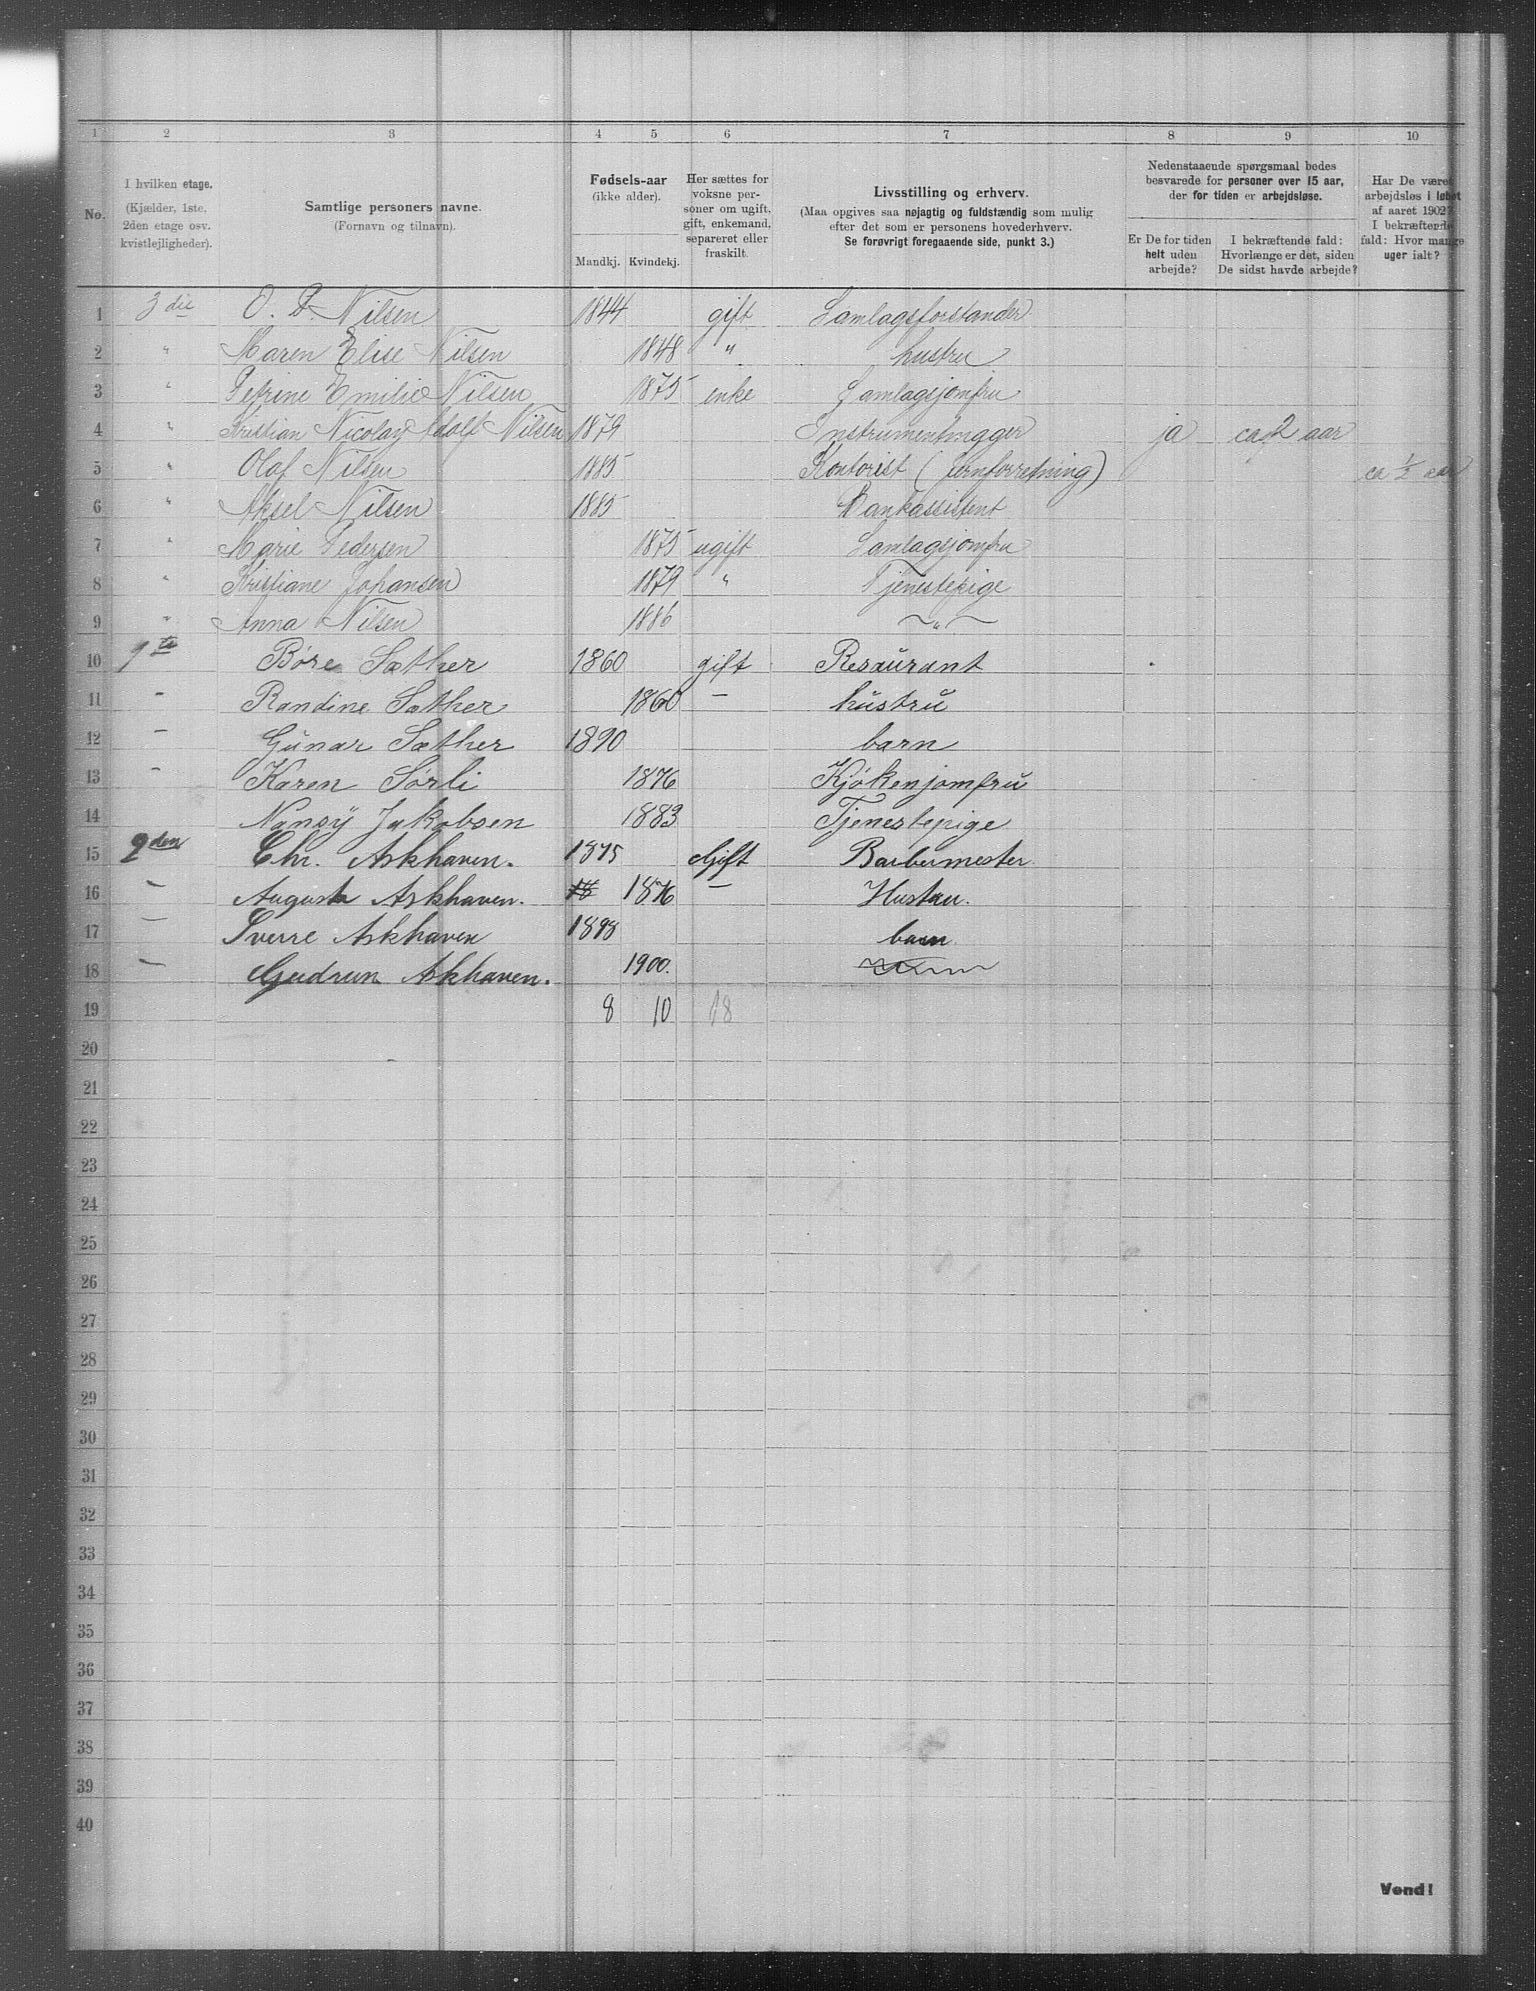 1 2 3 4 5 6 7 8 9 10
No.
I hvilken etage.
(Kjælder, 1ste,
2den etage osv.
kvistlejligheder).
Samtlige personers navne.
(Fornavn og tilnavn).
Fødsels-aar
(ikke alder).
Mandkj. Kvindekj.
Her sættes for
voksne per-
soner om ugift,
gift, enkemand,
separeret eller
fraskilt.
Livsstilling og erhverv.
(Maa opgives saa nøjagtig og fuldstændig som mulig
efter det som er personens hovederhverv.
Se forøvrigt foregaaende side, punkt 3.)
Nedenstaaende spørgsmaal bedes
besvarede for personer over 15 aar,
der for tiden er arbejdsløse.
Er De for tiden
helt uden
arbejde?
I bekræftende fald:
Hvorlænge er det, siden
De sidst havde arbejde?
Har De været
arbejdsløs i løbet
af aaret 1902?
I bekræftende
fald: Hvor mange
uger ialt?
1 3die O. P. Nilsen 1844 gift Samlagsforstander
2 " Maren Elise Nilsen 1848 " hustru
3 " Petrine Emilie Nilsen 1875 enke Samlagsjomfru
4 " Kristian Nicolay Adolf Nilsen 1879 Instrumentmager ja ca 2 aar
5 " Olaf Nilsen 1885 Kontorist (Jernforretning) ca ½ aar
6 " Aksel Nilsen 1885 Bankassistent
7 " Marie Pedersen 1875 ugift Samlagsjomfru
8 " Kristiane Johansen 1879 " Tjenestepige
9 " Anna Nilsen 1886 — " —
10 1ste Børe Sæther 1860 gift Resaurant
11 - Randine Sæther 1860 - hustru
12 - Gunar Sæther 1890 barn
13 - Karen Sørli 1876 Kjøkenjomfru
14 Nansy Jakobsen 1883 Tjenestepige
15 2den Chr. Askhaven. 1875 Gift Barbermester
16 - Augusta Askhaven. 18 1876 - Hustru.
17 - Sverre Askhaven 1898 barn
18 - Gudrun Askhaven. 1900.
19 8 10 18
20
21
22
23
24
25
26
27
28
29
30
31
32
33
34
35
36
37
38
39
40
Vend!